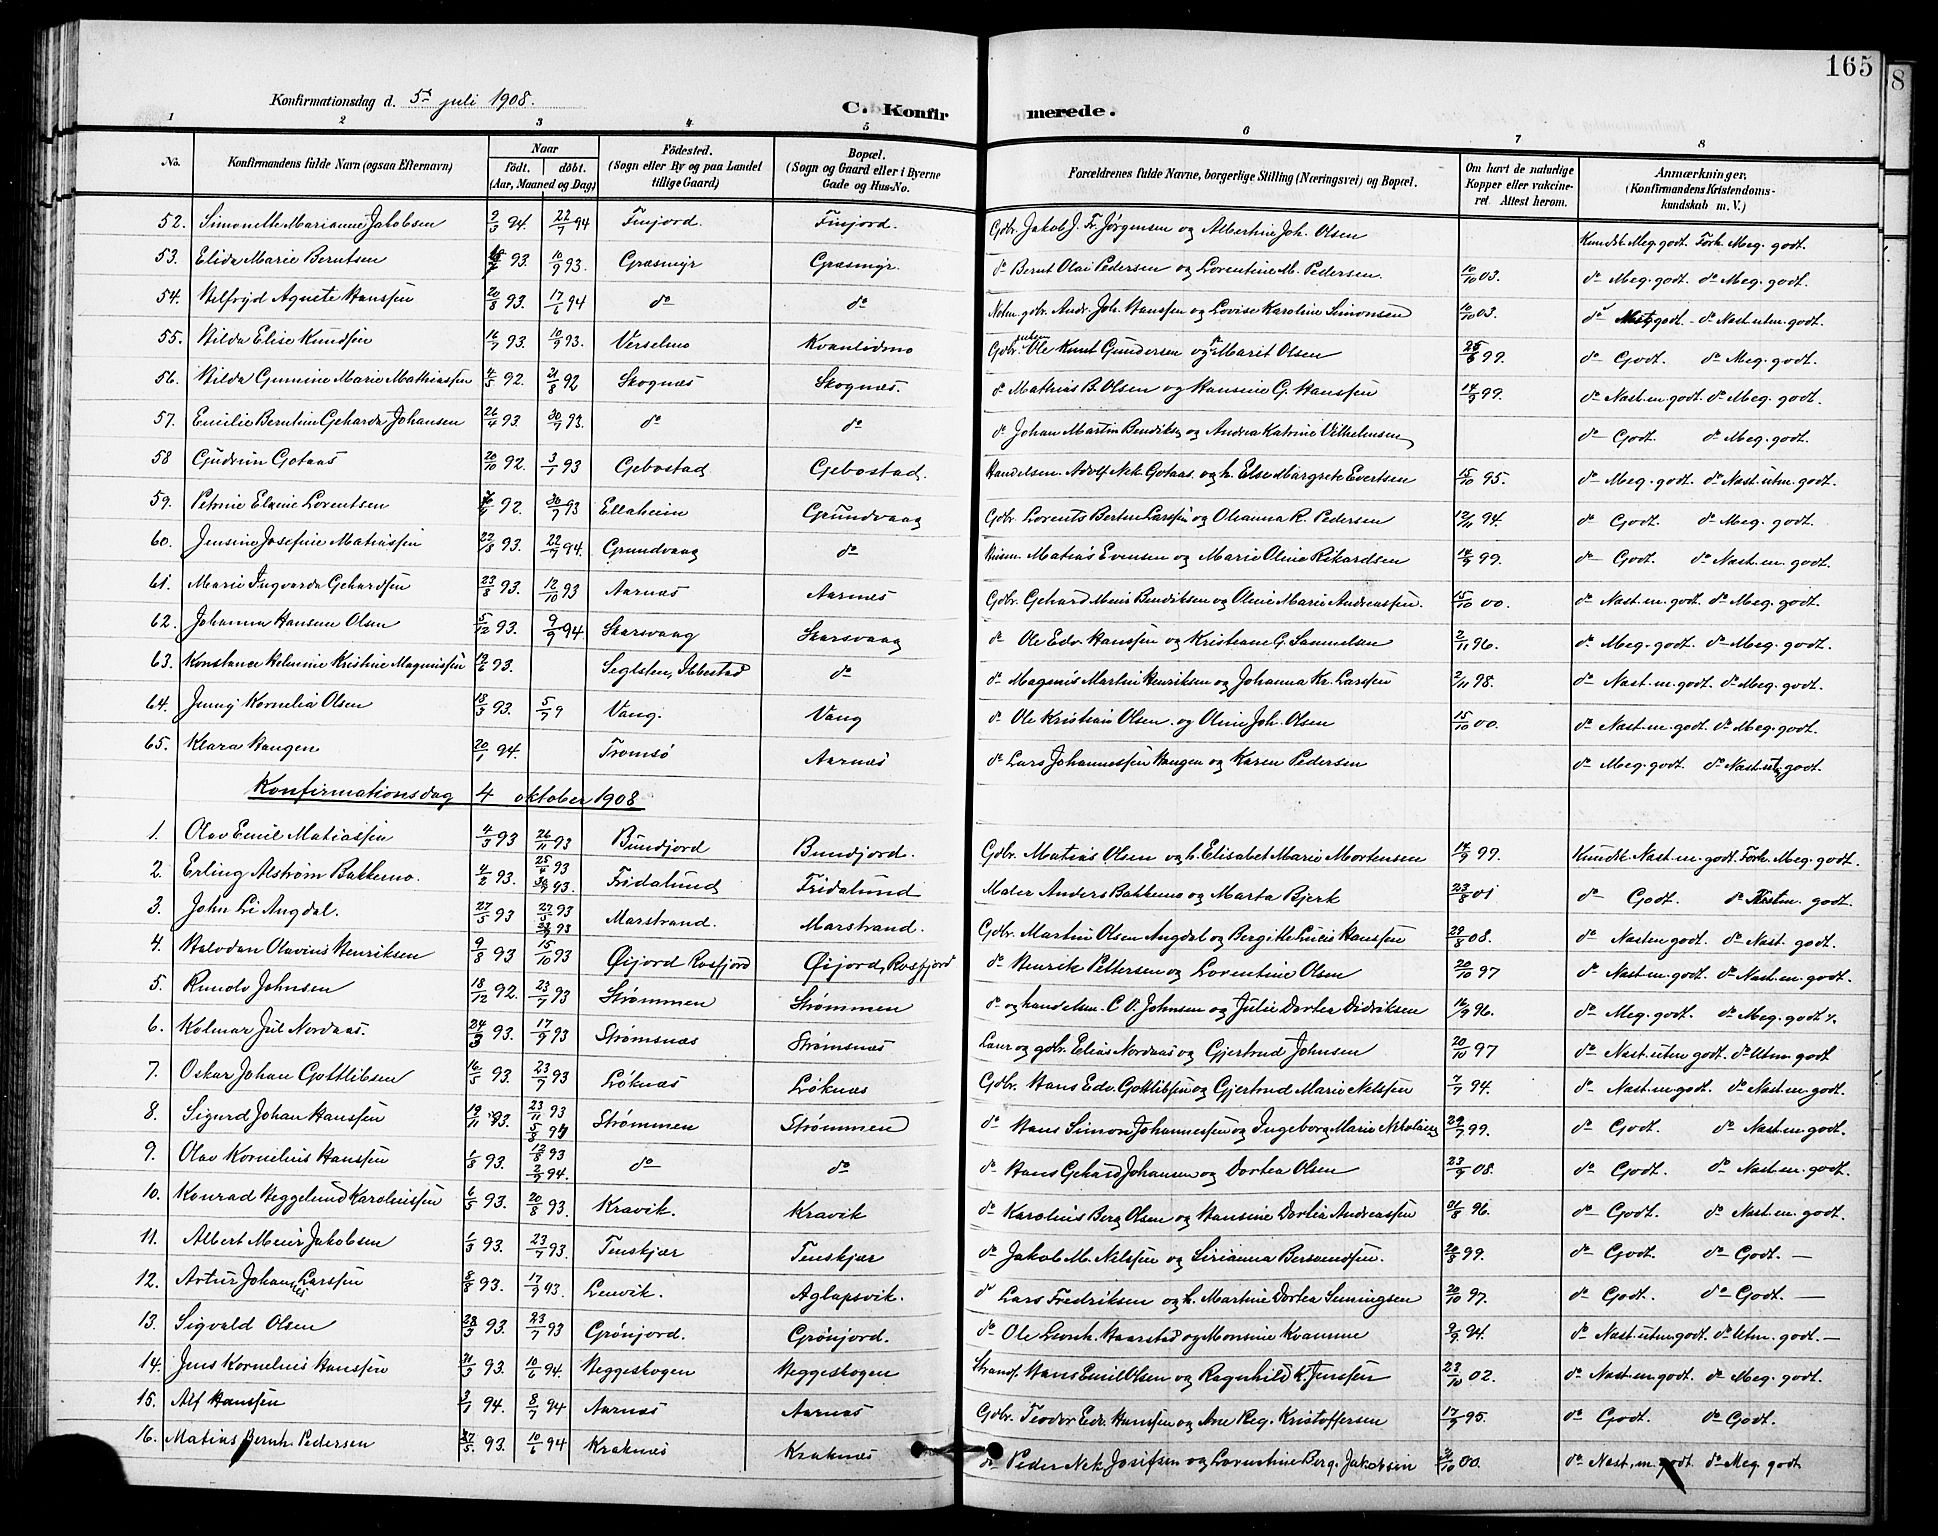 165
8
Konfirmationsdag d. 5te juli 1908. C. Konfirmerede.
1 2 3 4 5 6 7 8
No. Konfirmandens fulde Navn (ogsaa Efternavn) Naar födt. döbt. (Aar, Maaned og Dag) Födested. (Sogn eller By og paa Landet tillige Gaard) Bopæl. (Sogn og Gaard eller i Byerne Gade og Hus-No. Forældrenes fulde Navne, borgerlige Stilling (Næringsvei) og Bopæl. Om havt de naturlige Kopper eller vakcineret. Attest herom. Anmærkninger. (Konfirmandens Kristendomskundskab m. V.)
52. Simonette Marianne Jakobsen 2/3 94. 22/7 94 Finjord. Finjord. Gdbr. Jakob J. Fr. Jørgensen og Albertine Joh. Olsen Kundsk. Meg. godt. Forh. Meg. godt.
53. Elida Marie Berntsen 93. 10/9 93. Græsmyr Græsmyr. do Bernt Olai Pedersen og Lorentine M. Pedersen. 10/10 03. do Meg. godt. do Meg. godt.
54. Helfrid Agnete Hanssen 20/8 93. 17/6 94 do do gdbr. Andr. Joh. Hanssen og Lovise Karoline Simonsen 10/10 03. do Mst. godt - do Nast. utm. godt.
55. Hilda Elise Knudsen 16/7 93. 10/9 93. Verselmo Kvanlidmo Gdbr. Ole Knut Gundersen og Marit Olsen 25/6 99. do Godt. do Meg. godt.
56. Hilda Gumine Marie Mathiassen 4/5 92. 21/8 92 Skognæs Skognæs do Mathias B. Olsen og Hansine G. Hanssen 14/9 99. do Nast. m. godt do Meg. godt.
57. Emilie Berntine Geharda Johansen 26/4 93. 30/7 93. do do do Johan Martin Bendiksen og Andrea Katrine Vilhelmsen do Godt. do Meg. godt.
58 Gudrun Gotaas 20/10 92. 3/1 93 Gebostad Gebostad. Handelsm. Adolf Nek. Gotaas. og h. Else Margrete Evertsen 15/10 95. do Meg. godt do Nast. utm. godt.
59. Petrine Elvine Lorentsen 92. 30/7 93 Ellaheim Grundvaag Gdbr. Lorents Bertin Larssen og Oleanna R. Pedersen 12/11 94. do Godt do Meg. godt.
60. Jensine Josefine Matiassen 22/8 93. 22/7 94. Grundvaag do Husm. Matias Evensen og Marie Oline Rikardsen 14/9 99. do Godt. do Nast. m. godt.
61. Marie Ingvarda Gehardsen 23/8 93. 12/10 93 Aarnæs Aarnæs Gdbr. Gehard Meier Bendiksen og Oline Marie Andreassen. 15/10 00. do Nast. m. godt. do Meg. godt.
62. Johanna Hansine Olsen 5/12 93. 9/9 94 Skarsvaag Skarsvaag do Ole Edv. Hanssen og Kristiane G. Samuelsen 2/11 96. do Meg. godt. do Meg. godt.
63. Konstance Helmine Kristine Magnussen 19/6 93. Seglsten, Ibbestad do do Magnus Martin Henriksen og Johanna Kr. Larssen 2/11 98. do Nast. m. godt. do Meg. godt.
64. Jenny Kornelia Olsen 18/3 93. 5/7 9 Vang. Vang do Ole Kristian Olsen. og Oline Joh. Olsen 15/10 00. do Nast. m. godt do Meg. godt.
65. Klara Haugen 20/1 94. Tromsö Aarnæs do Lars Johannessen Haugen og Karen Pedersen do Meg. godt. do Nast. utm. godt.
Konfirmationsdag 4 oktober 1908
1. Olav Emil Matiassen 4/3 93 26/11 93 Bundjord Bundjord. Gdbr. Matias Olsen og h. Elisabet Marie Mortensen 14/9 99. Kundsk. Nast. m. godt. Forh. Meg. godt.
2. Erling Alstrøm Bakkemo. 4/2 93. 93 93. Fridalund Fridalund Maler Anders Bakkemo og Marta Bjerk 23/8 01 do Godt. do Nast m. godt.
3. John Li Angdal. 27/5 93 27/5 93 93 Marstrand. Marstrand. Gdbr. Martin Olsen Angdal og Bergitte Lucis Hanssen 29/8 08. do Nast m godt. do Nast. godt.
4. Halvdan Olavius Henriksen 9/8 93 15/10 93 Øijord Rosfjord Øijord, Rosfjord do Henrik Pettersen og Lorentine Olsen 20/10 97 do Nast. m. godt. do Nast. m. godt.
5. Runolv Johnsen 18/12 92. 23/7 93 Strømmen Strømmen do og handelsm. C. O. Johnsen og Julie Dortea Didriksen 16/9 96. do Meg. godt. do Meg. godt.
6. Kolmar Jul Nordaas. 24/3 93. 17/9 93 Strømsnæs Strømsnæs Lærer og gdbr. Elias Nordaas og Gjertrud Johnsen 20/10 97 do Nast. utm godt. do Utm. godt
7. Oskar Johan Gottlibsen 16/5 93. 23/7 93 Løknæs Løknæs Gdbr. Hans Edv. Gottlibsen og Gjertrud Marie Nilssen 7/7 94. do Nast. m. godt. do Nast. m. godt.
8. Sigurd Johan Hanssen 19/11 93. 23/11 93 5/8 94 Strømmen Strømmen do Hans Simon Johannessen og Ingeborg Marie Nikolaisen 29/7 99. do Godt. do Nast. m. godt.
9. Olav Kornelius Hanssen 1/8 93. 12/8 93 2/9 94. do do do Hans Gehard Johansen og Dortea Olsen 23/9 08. do Godt. do Nast. m. godt.
10. Konrad Heggelund Karoliussen 6/5 93. 20/8 93. Kravik. Kravik do Karolius Berg Olsen og Hansine Dortea Andreassen 21/8 96. do Godt. do Nast. m. godt.
11. Albert Meier Jakobsen 1/3 93. 23/7 93. Tenskjær Tenskjær do Jakob M. Nilssen og Sirianna Bersvendsen. 20/8 99. do Godt do Godt. —
12. Artur Johannes Larssen 8/8 93. 17/9 93. Lenvik. Aglapsvik. do Lars Fredriksen og h. Martine Dortea Simingsen 20/10 97. do Godt. do Godt. —
13. Sigvald Olsen 28/3 93. 23/7 93 Grønjord. Grønjord. do Ole Leonh. Haarstad og Monsine Kvamme 9/9 94. do Nast. utm. godt. do Utm. godt. —
14. Jens Kornelius Hanssen 21/3 93. 10/6 94. Heggeskogen Heggeskogen Strands. Hans Emil Olsen og Ragnhild K. Jenssen 23/10 02. do Nast. m. godt. do Meg. godt.
15. Alf Hanssen 3/1 94. 8/7 94 Aarnæs Aarnæs Gdbr. Teodor Edv. Hanssen og Ane Reg. Kristoffersen 17/9 95. do Godt. do Godt.
16. Matias Bernh. Pedersen 27/5 93. 10/6 94 Kraknæs Kraknæs do Peder Nek. Josifsen og Lorentine Berg. Jakobsen 00. do Nast. m. godt. do Meg. godt